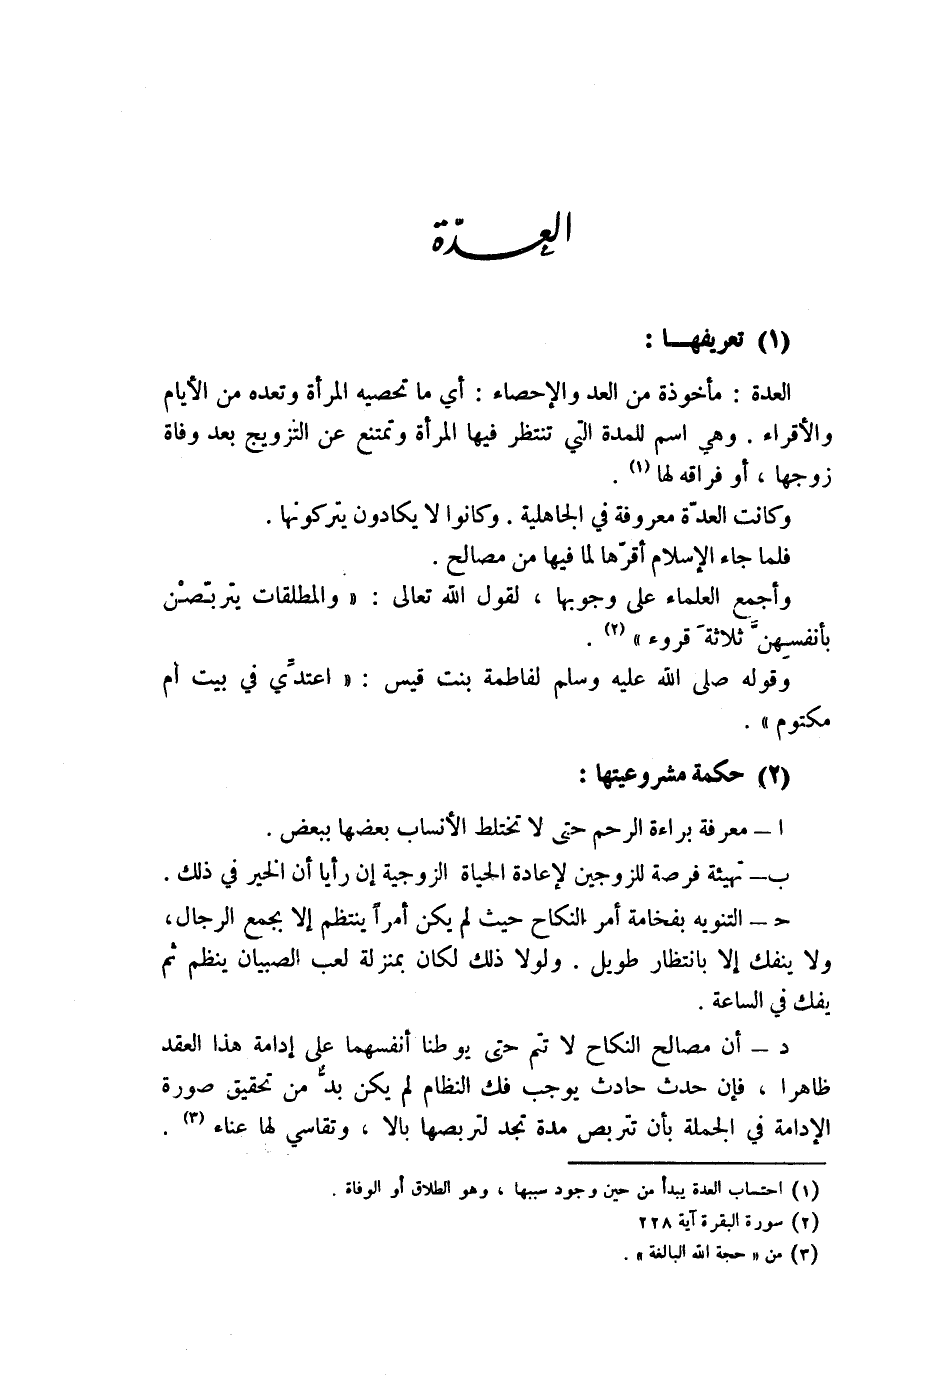 العِدّة
(١) تعريفهــا :
العدة : مأخوذة من العد والإحصاء : أي ما تحصيه المرأة وتعده من الأيام
والأقراء . وهي اسم للمدة التي تنتظر فيها المرأة وتمتنع عن التزويج بعد وفاة
زوجها ، أو فراقه لها (١) .
وكانت العدّة معروفة في الجاهلية . وكانوا لا يكادون يتركونها .
فلما جاء الإسلام أقرّها لما فيها من مصالح .
وأجمع العلماء على وجوبها ، لقول الله تعالى : « والمطلقات يتربّصْن
بأنفسِهنَّ ثلاثةَ قروء » (٢) .
وقوله صلى الله عليه وسلم لفاطمة بنت قيس : « اعتدِّي في بيت أم
مكتوم » .
(٢) حكمة مشروعيتها :
ا – معرفة براءة الرحم حتى لا تختلط الأنساب بعضها ببعض .
ب– تهيئة فرصة للزوجين لإعادة الحياة الزوجية إن رأيا أن الخير في ذلك .
حـ – التنويه بفخامة أمر النكاح حيث لم يكن أمراً ينتظم إلا بجمع الرجال،
ولا ينفك إلا بانتظار طويل . ولولا ذلك لكان بمنزلة لعب الصبيان ينظم ثُم
يفك في الساعة .
د – أن مصالح النكاح لا تتم حتى يوطنا أنفسهما على إدامة هذا العقد
ظاهرا ، فإن حدث حادث يوجب فك النظام لم يكن بدٌّ من تحقيق صورة
الإدامة في الجملة بأن تتربص مدة تجد لتربصها بالا ، وتقاسي لها عناء (٣) .
(١) احتساب العدة يبدأ من حين وجود سببها ، وهو الطلاق أو الوفاة .
(٢) سورة البقرة آية ٢٢٨
(٣) من « حجة الله البالغة » .